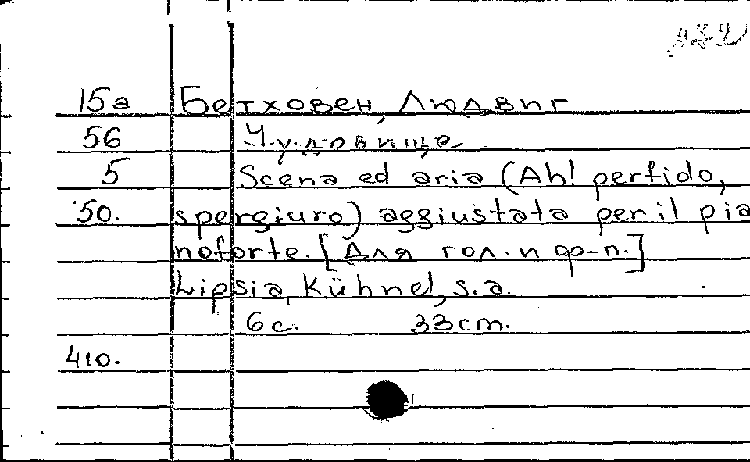 15а Бетховен, Людвиг
56 Чудовище
5 Scena ed aria (Ah! perfido,
50. spergiuro) aggiustata per il pia
noforte. [Для гол. и ф-п.]
Lipsia, Kühnel, s.a.
6 с. 33 cm.
410.